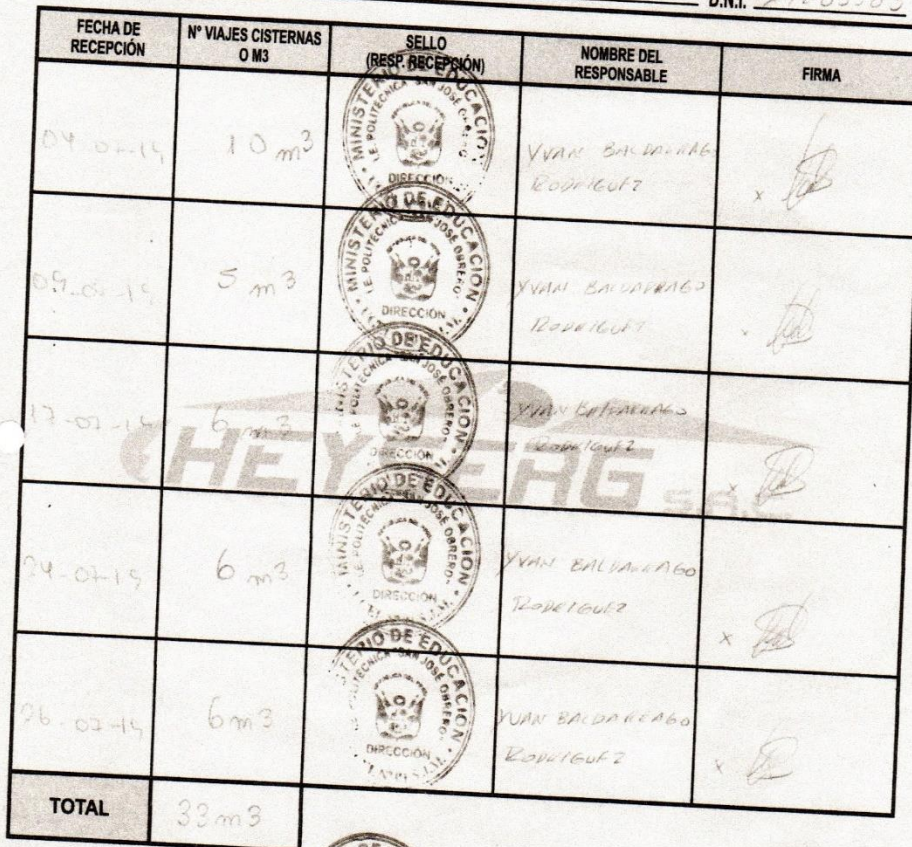 D.N.I.
FECHA DE RECEPCIÓN
N° VIAJES CISTERNAS O M3
SELLO (RESP. RECEPCIÓN)
NOMBRE DEL RESPONSABLE
FIRMA
10 m3
MINISTERIO DE EDUCACION
I.E. POLITECNICA "SAN JOSE OBRERO"
DIRECCION
YVAN BALDARRAGO
RODRIGUEZ
x
5 m3
MINISTERIO DE EDUCACION
I.E. POLITECNICA "SAN JOSE OBRERO"
DIRECCION
YVAN BALDARRAGO
RODRIGUEZ
17-07-19
6 m3
MINISTERIO DE EDUCACION
I.E. POLITECNICA "SAN JOSE OBRERO"
DIRECCION
YVAN BALDARRAGO
RODRIGUEZ
x
24-07-19
6 m3
MINISTERIO DE EDUCACION
I.E. POLITECNICA "SAN JOSE OBRERO"
DIRECCION
YVAN BALDARRAGO
RODRIGUEZ
x
26-07-19
6 m3
MINISTERIO DE EDUCACION
I.E. POLITECNICA "SAN JOSE OBRERO"
DIRECCION
YVAN BALDARRAGO
RODRIGUEZ
x
TOTAL
33 m3